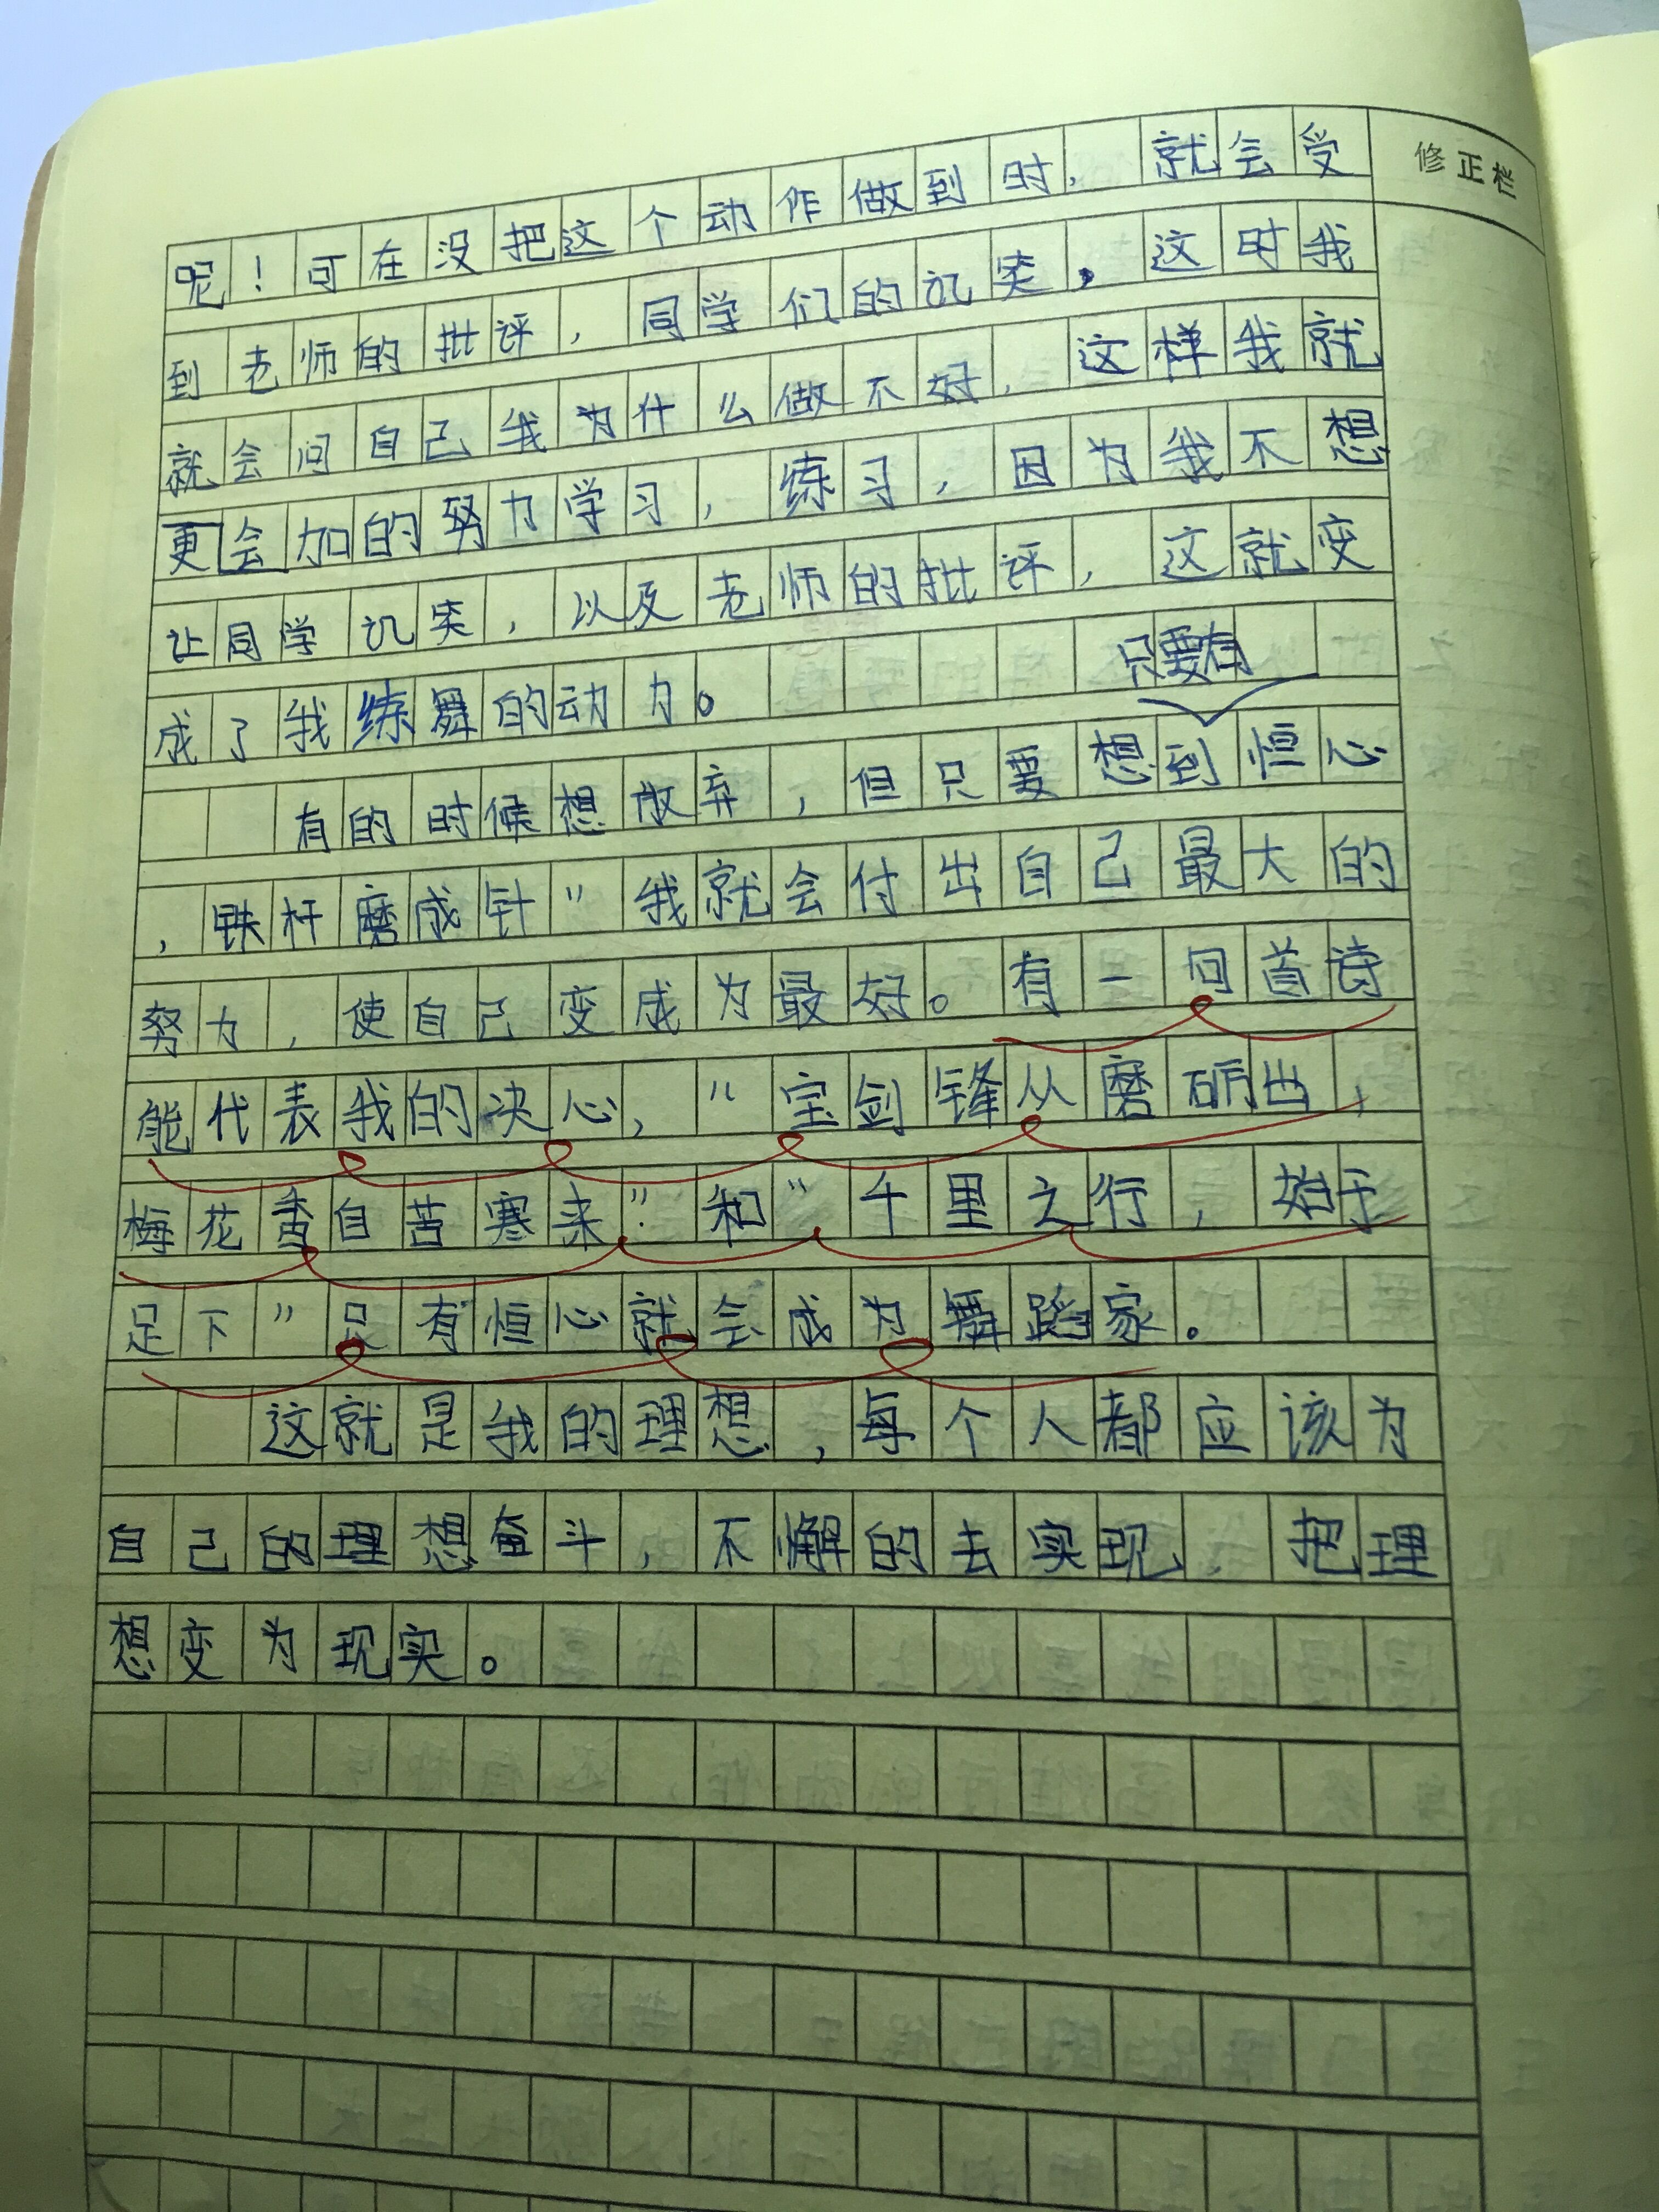 修正栏
呢！可在没把这个动作做到时，就会受
到老师的批评，同学们的讥笑。这时我
就会问自己我为什么做不好，这样我就
更会加的努力学习，练习，因为我不想
让同学讥笑，以及老师的批评，这就变
成了我练舞的动力。
只要有
有的时候想放弃，但只要想到恒心
，铁杆磨成针”我就会付出自己最大的
努力，使自己变成为最好。有一句首诗
能代表我的决心，“宝剑锋从磨砺出，
梅花香自苦寒来”和“千里之行，始于
足下”只有恒心就会成为舞蹈家。
这就是我的理想，每个人都应该为
自己的理想奋斗，不懈的去实现，把理
想变为现实。